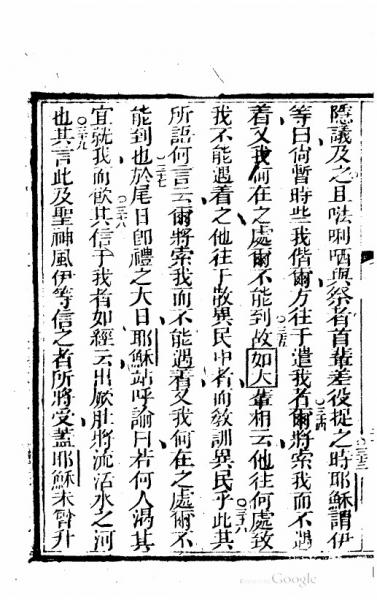 隱議及之且𠵽唎哂與祭者首輩差役捉之時耶穌謂伊
等曰尙暫時些我偕爾方往于遣我者爾將索我而不遇
着又我何在之處爾不能到故如大輩相云他往何處致
我不能遇着之他往于散異民中者而敎訓異民乎此其
所語何言云爾將索我而不能遇着又我何在之處爾不
能到也於尾日卽禮之大日耶穌站呼諭曰若何人渴其
宜就我而飲其信于我者如經云出厥肚將流活水之河
也其言此及聖神風伊等信之者所將受蓋耶穌未曾升
Google